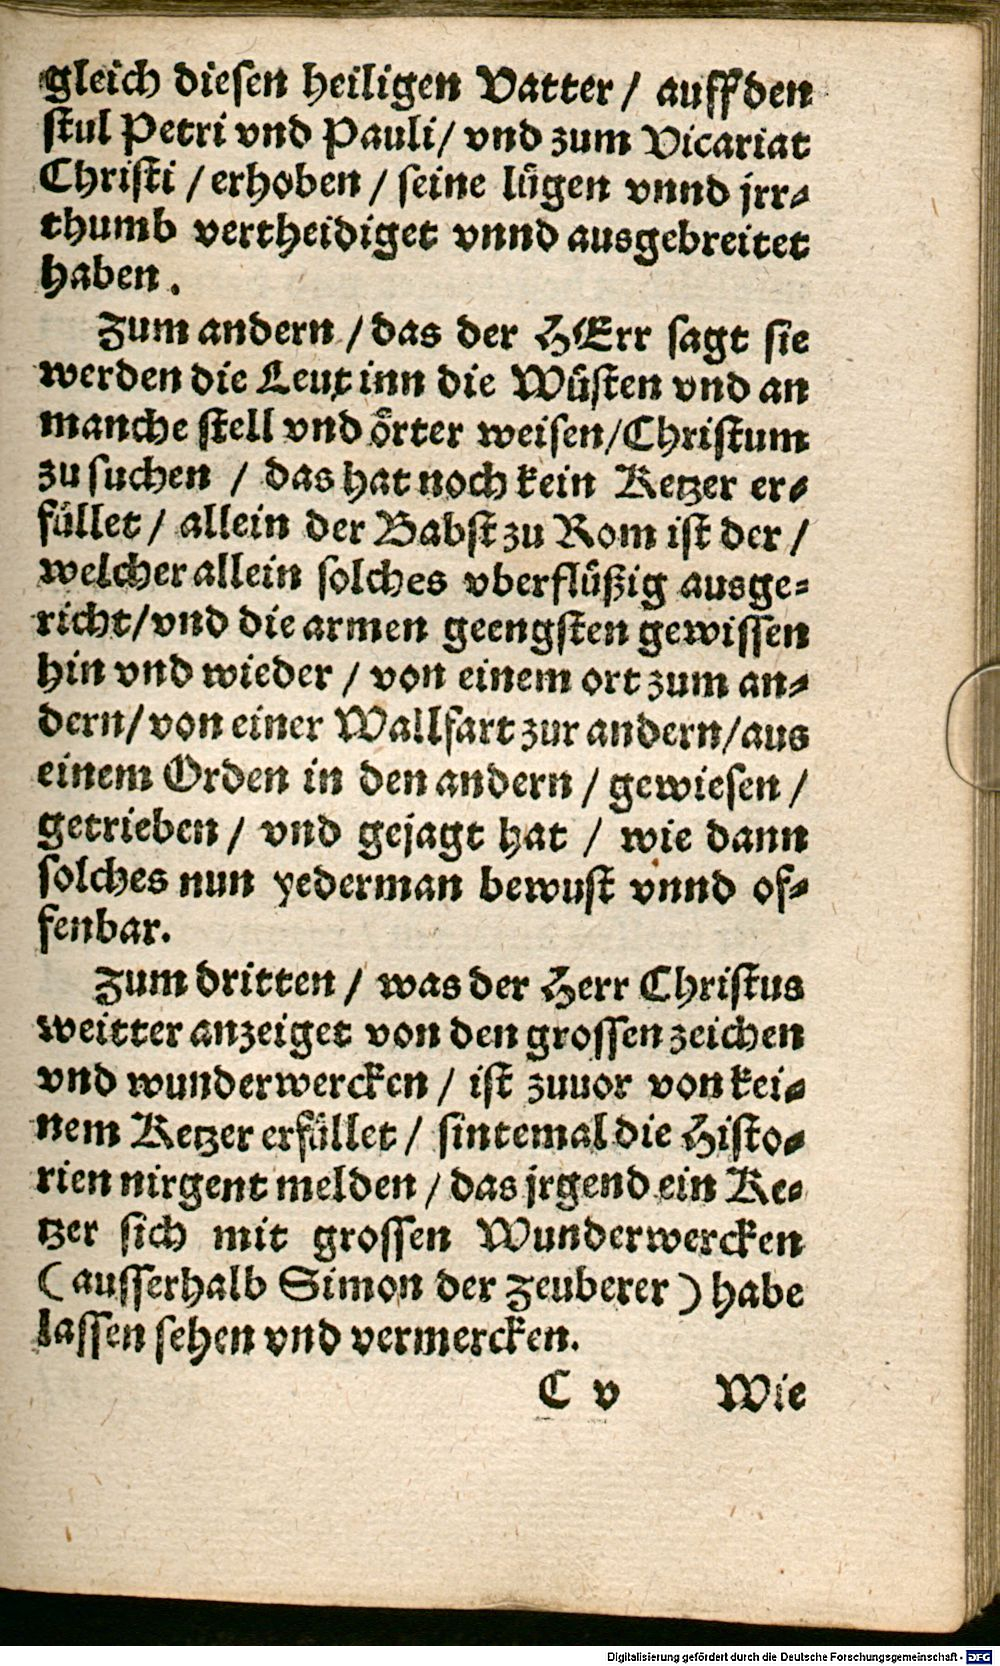 gleich diesen heiligen Vatter / auff den
stul Petri vnd Pauli / vnd zum Vicariat
Christi / erhoben / seine lügen vnnd jrr-
thumb vertheidiget vnnd ausgebreitet
haben.
Zum andern / das der HErr sagt sie
werden die Leut inn die Wüsten vnd an
manche stell vnd örter weisen / Christum
zu suchen / das hat noch kein Ketzer er-
füllet / allein der Babst zu Rom ist der /
welcher allein solches vberflüßig ausge-
richt / vnd die armen geengsten gewissen
hin vnd wieder / von einem ort zum an-
dern / von einer Wallfart zur andern / aus
einem Orden in den andern / gewiesen /
getrieben / vnd gejagt hat / wie dann
solches nun yederman bewust vnnd of-
fenbar.
Zum dritten / was der Herr Christus
weitter anzeiget von den grossen zeichen
vnd wunderwercken / ist zuuor von kei-
nem Ketzer erfüllet / sintemal die Histo-
rien nirgent melden / das jrgend ein Ke-
tzer sich mit grossen Wunderwercken
(ausserhalb Simon der Zeuberer) habe
lassen sehen vnd vermercken.
C v Wie
Digitalisierung gefördert durch die Deutsche Forschungsgemeinschaft - DFG